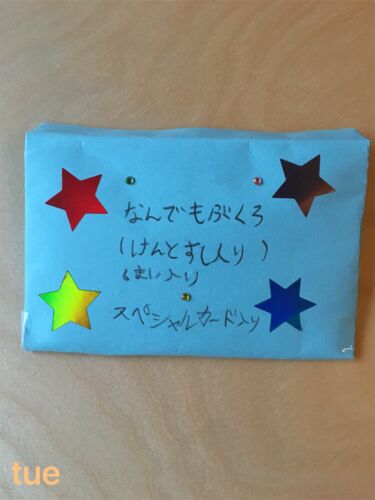 なんでもぶくろ
(けんとすし入り)
スペシャルカード入り
tue